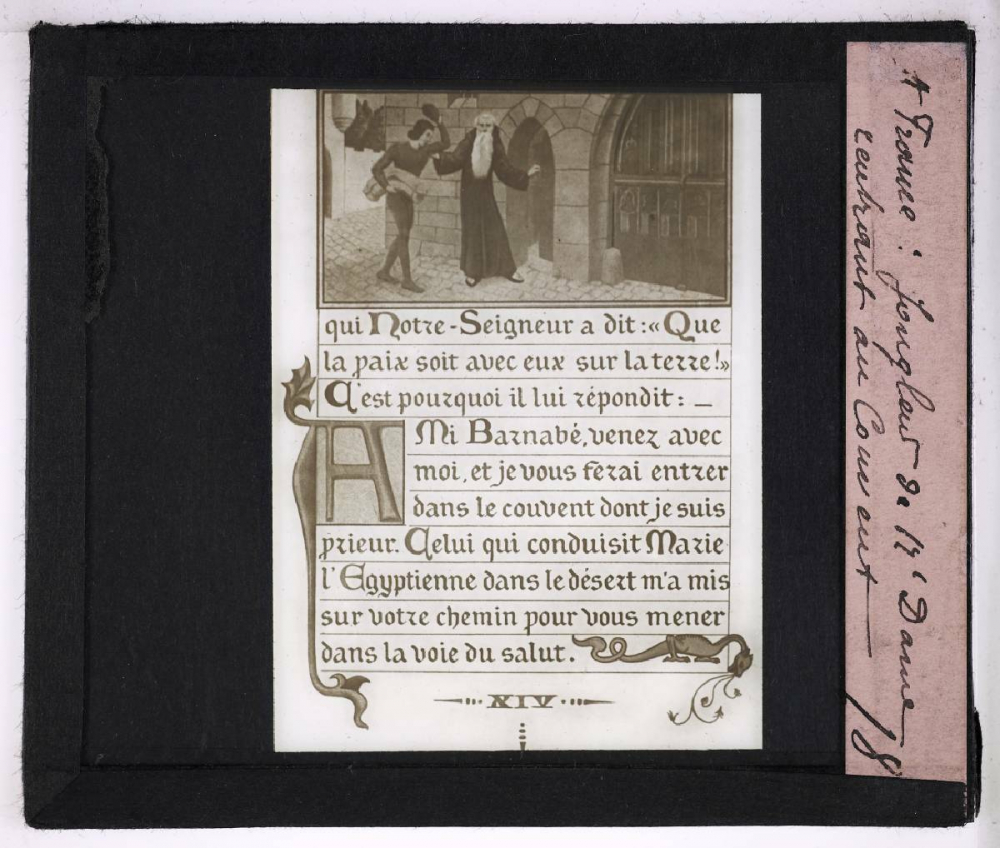 qui Notre-Seigneur a dit :« Que
la paix soit avec eux sur la terre !»
C'est pourquoi il lui répondit : —
AMi Barnabé, venez avec
moi, et je vous ferai entrer
dans le couvent dont je suis
prieur. Celui qui conduisit Marie
l'Egyptienne dans le désert m'a mis
sur votre chemin pour vous mener
dans la voie du salut.
XIV
A France : Jongleur de Nt Dame
rentrant au Couvent — 18